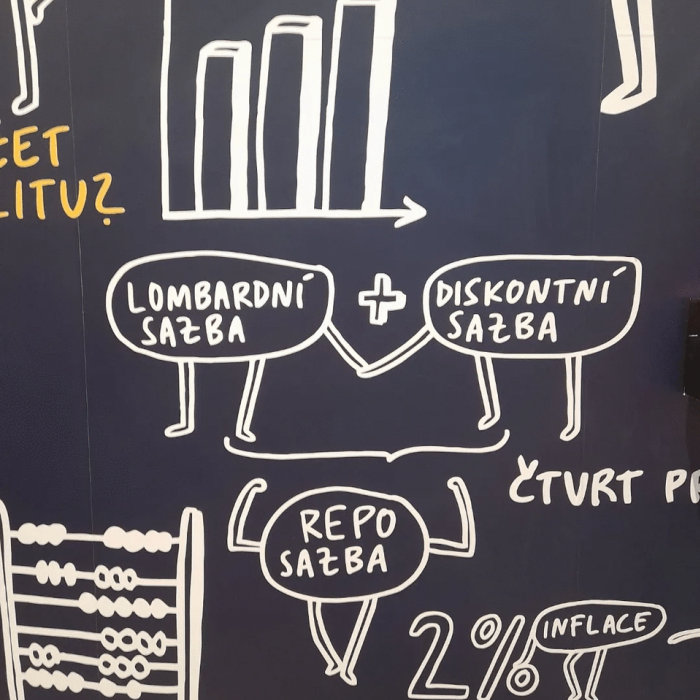 LITU?
LOMBARDNÍ
SAZBA
+
DISKONTNÍ
SAZBA
ČTVRT
REPO
SAZBA
2%
INFLACE